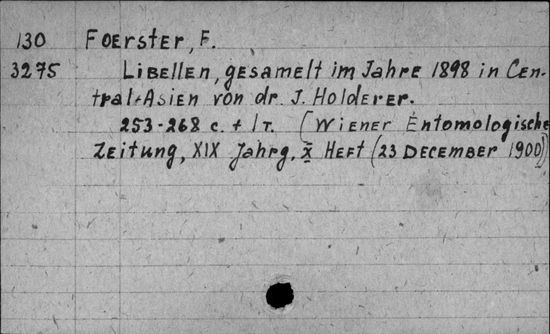 130 Foerster, F.
3275 Libellen, gesamelt im Jahre 1898 in Cen-
tral-Asien von dr. J. Holderer.
253-268 c. + 1 т. (Wiener Entomologische
Zeitung, XIX Jahrg, X Heft (23 December 1900))